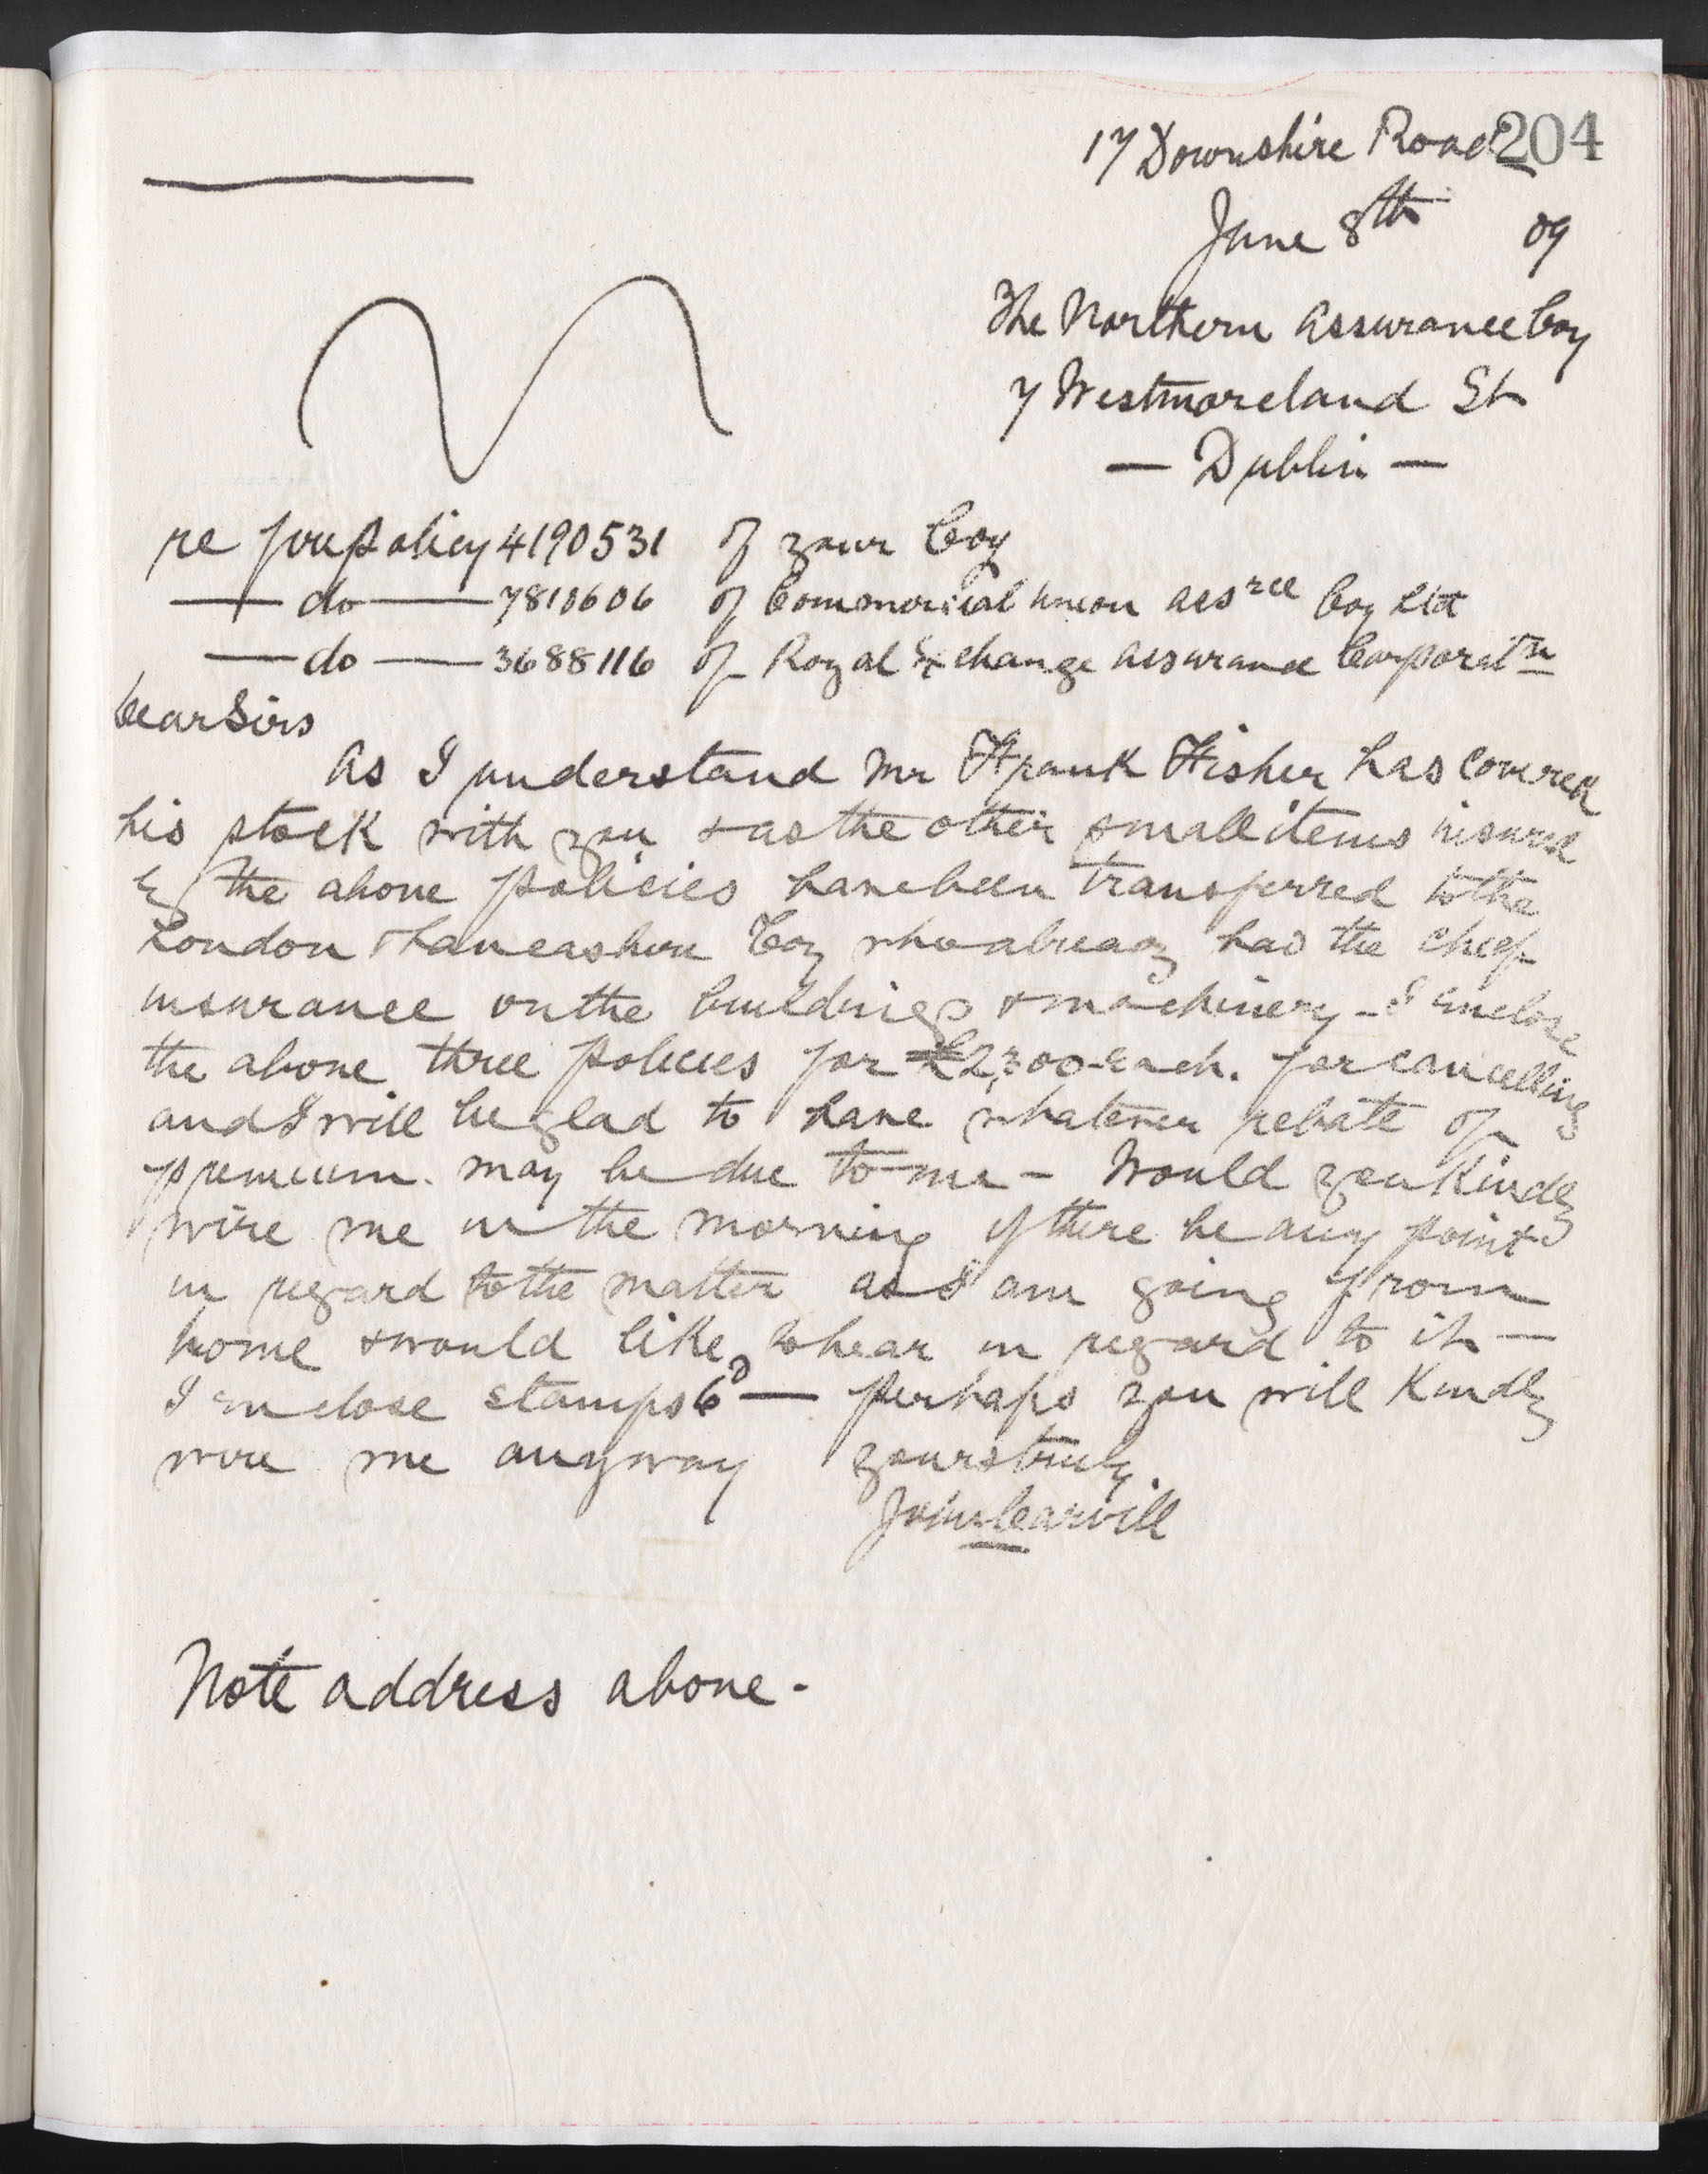 17 Downshire Road 204
June 8th 09
The Northern Assurance Coy
7 Westmoreland St
— Dublin —
re fire policy 4190531 of your Coy
— do — 7810606 of Commercial Union Assce Coy Ltd
— do — 3688116 of Royal Exchange Assurance Corporatn
Dear Sirs
As I understand Mr Frank Fisher has covered
his stock with you & as the other small items insured
by the above policies have been transferred to the
London & Lancashire Coy who already had the chief
insurance on the buildings & machinery - I enclose
the above three policies for £2,300 each. for cancelling
and I will be glad to have whatever rebate of
premium. may be due to me - Would you kindly
wire me in the morning if there be any points
in regard to the matter as I am going from
home & would like to hear in regard to it —
I enclose stamps 6D — perhaps you will kindly
wire me anyway yours truly.
John Carvill
Note address above.